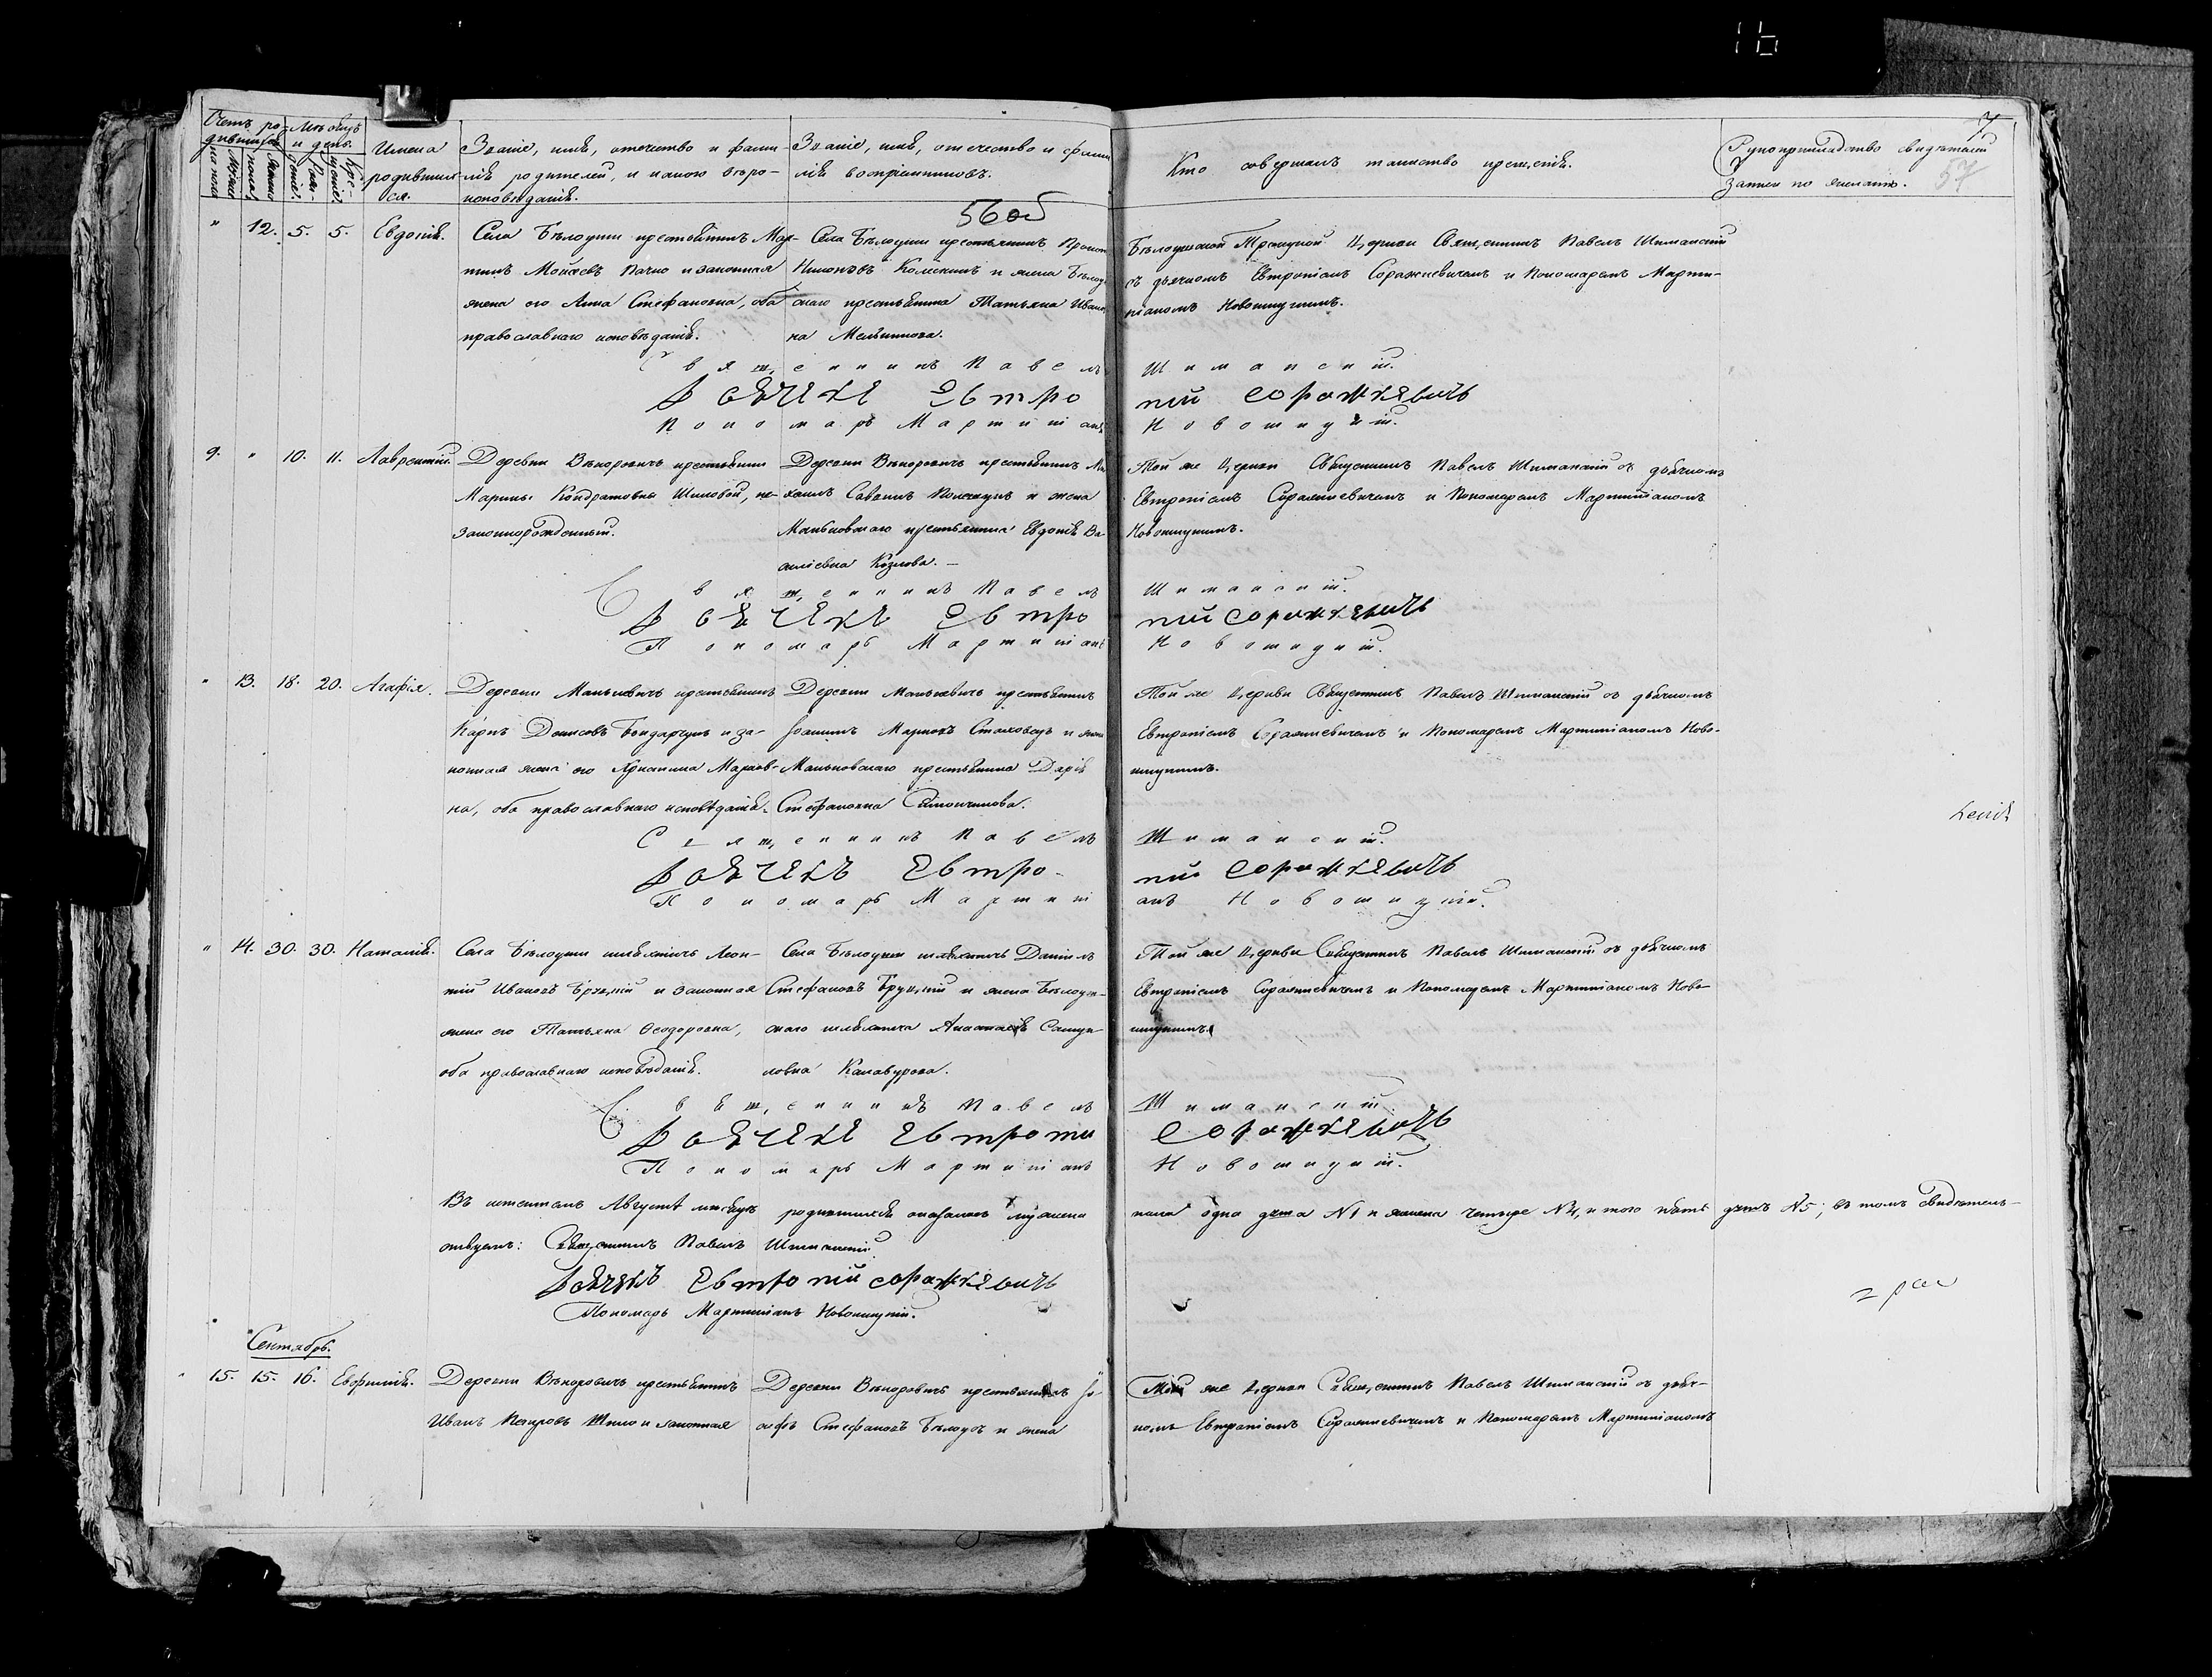 16
7
57
56 об
Счетъ родившихся
Мѣсяцъ и день
Мужеска пола
Женска пола
Рожденіе
Крещеніе
Имена родившихся.
Званіе, имя, отечество и фамилія родителей, и какого вѣроисповѣданія.
Званіе, имя, отечество и фамилія воспріемниковъ.
Кто совершалъ таинство крещенія.
Рукоприкладство свидѣтелей записи по желанію.
" 12. 5. 5. Евдокія.
Села Бѣлоуши крестьянинъ Мар-
тинъ Моисеевъ и законная
жена его Анна Стефановна, оба
православнаго исповѣданія.
Села Бѣлоуши крестьянинъ
Никоновъ и жена Бѣлоуш-
скаго крестьянина Татьяна Иванов-
на Мельникова.
Бѣлоушской Троицкой Церкви Священникъ Павелъ Шиманскій
съ дьячкомъ Евтропіемъ Соражкевичемъ и Пономаремъ Марти-
ніаномъ Новомицкимъ.
Священникъ Павелъ Шиманскій.
Дьячекъ Евтропій Соражкевичъ
Пономарь Мартиніанъ Новомицкій.
9. " 10. 11. Лаврентій.
Деревни Вѣкоровичъ крестьянки
Марины Кондратовны Шиловой, не-
законнорожденный.
Деревни Вѣкоровичъ крестьянинъ
Савинъ и жена
Маньковскаго крестьянина Евдокія Ва-
силіевна Козлова.
Той же Церкви Священникъ Павелъ Шиманскій съ дьячкомъ
Евтропіемъ Соражкевичемъ и Пономаремъ Мартиніаномъ
Новомицкимъ.
Священникъ Павелъ Шиманскій.
Дьячекъ Евтропій Соражкевичъ
Пономарь Мартиніанъ Новомицкій.
" 13. 18. 20. Агафія.
Деревни Маньковичъ крестьянинъ
Карпъ Денисовъ Бондарчукъ и за-
конная жена его Марков-
на, оба православнаго исповѣданія.
Деревни Маньковичъ крестьянинъ
Іоакимъ Марковъ Стаховецъ и жена
Маньковскаго крестьянина Дарія
Стефановна Симончикова.
Той же Церкви Священникъ Павелъ Шиманскій съ дьячкомъ
Евтропіемъ Соражкевичемъ и Пономаремъ Мартиніаномъ Ново-
мицкимъ.
Священникъ Павелъ Шиманскій.
Дьячекъ Евтропій Соражкевичъ
Пономарь Мартиніанъ Новомицкій.
" 14. 30. 30. Наталія.
Села Бѣлоуши шляхтичъ Леон-
тій Ивановъ и законная
жена его Татьяна Ѳеодоровна,
оба православнаго исповѣданія.
Села Бѣлоуши шляхтичъ Даніилъ
Стефановъ Бруцкій и жена Бѣлоуш-
скаго шляхтича Анастасія Самуи-
ловна Калавурова.
Той же Церкви Священникъ Павелъ Шиманскій съ дьячкомъ
Евтропіемъ Соражкевичемъ и Пономаремъ Мартиніаномъ Ново-
мицкимъ.
Священникъ Павелъ Шиманскій.
Дьячекъ Евтропій Соражкевичъ
Пономарь Мартиніанъ Новомицкій.
Въ истекшемъ Августѣ мѣсяцѣ родившихся оказалось мужеска пола одно дитя №1 и женска четыре №4, и того пять душъ №5; въ томъ свидѣтель-
ствуемъ: Священникъ Павелъ Шиманскій
Дьячекъ Евтропій Соражкевичъ
Пономарь Мартиніанъ Новомицкій.
Сентябрь.
" 15. 15. 16. Евфимія.
Деревни Вѣкоровичъ крестьянинъ
Иванъ Петровъ Шило и законная
Деревни Вѣкоровичъ крестьянинъ Іо-
сифъ Стефановъ Бѣлоусъ и жена
Той же Церкви Священникъ Павелъ Шиманскій съ дьяч-
комъ Евтропіемъ Соражкевичемъ и Пономаремъ Мартиніаномъ